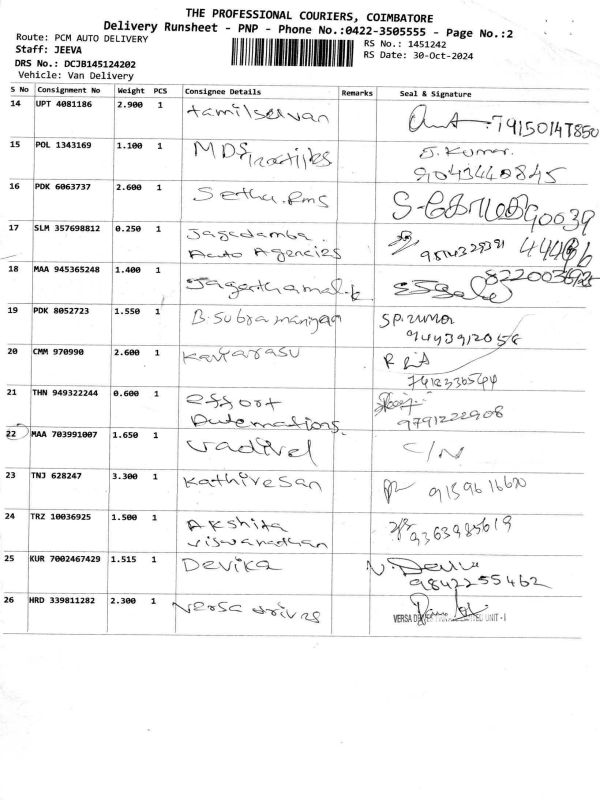 THE PROFESSIONAL COURIERS, COIMBATORE
Delivery Runsheet - PNP - Phone No.:0422-3505555 - Page No.:2
Route: PCM AUTO DELIVERY
RS No.: 1451242
Staff: JEEVA
RS Date: 30-Oct-2024
DRS No.: DCJB145124202
Vehicle: Van Delivery
S No Consignment No Weight PCS Consignee Details Remarks Seal & Signature
14 UPT 4081186 2.900 1 tamilselvan
15 POL 1343169 1.100 1 MDS J. Kumar.
9043440845
16 PDK 6063737 2.600 1 Setha.Rms
17 SLM 357698812 0.250 1 Jagadamba
Auto Agencies
18 MAA 945365248 1.400 1
19 PDK 8052723 1.550 1 B.Subramaniyan
9443912058
20 CMM 970990 2.600 1 Kavyarasu
21 THN 949322244 0.600 1 effort
Automations. 9791222908
22 MAA 703991007 1.650 1 vadivel C/N
23 TNJ 628247 3.300 1 Kathiresan 9159616620
24 TRZ 10036925 1.500 1 Akshita
viswanadhan 9363985619
25 KUR 7002467429 1.515 1 Devika V. Devika
9842255462
26 HRD 339811282 2.300 1 Versa drives
VERSA UNIT - I